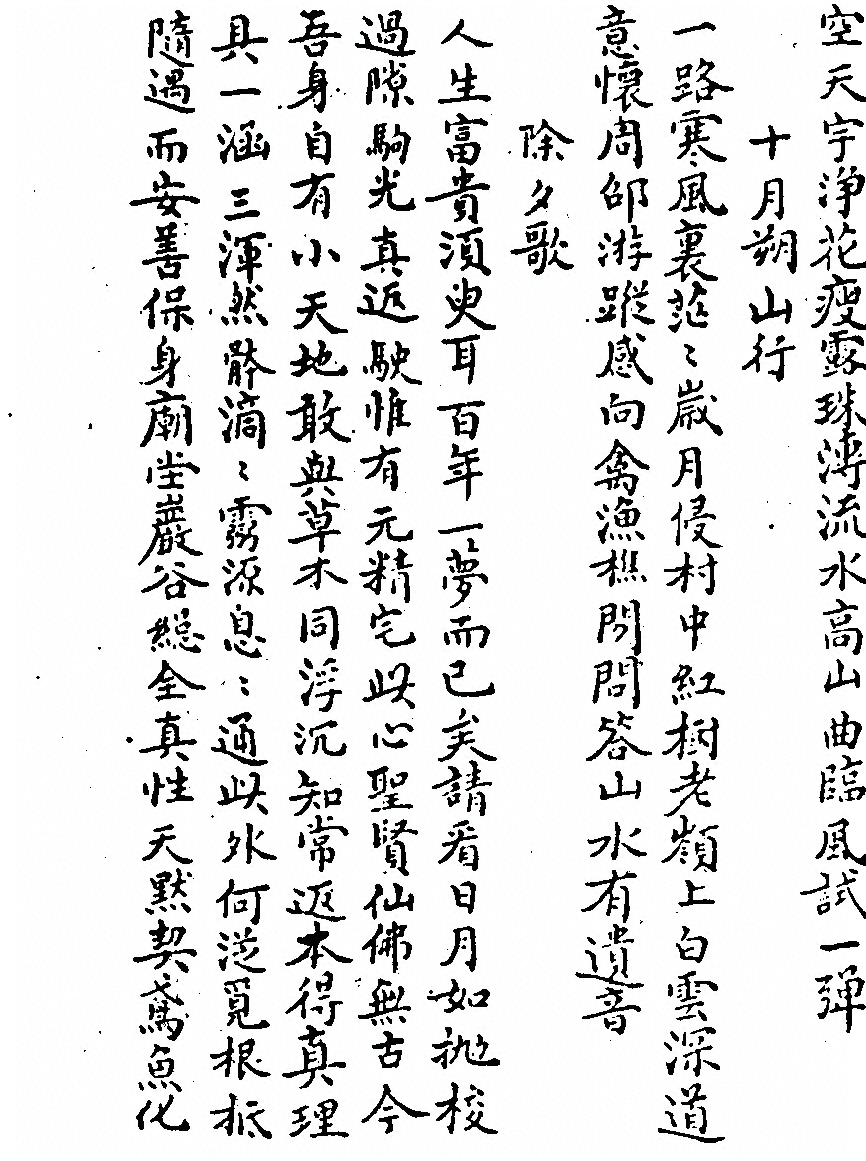 空天宇淨花瘦露珠漙流水高山曲臨風試一彈
十月朔山行
一路寒風裏茫〻歲月侵村中紅樹老嶺上白雲深道
意懷周邵游蹤感向禽漁樵閒問答山水有遺音
除夕歌
人生富貴須臾耳百年一夢而已矣請看日月如拋梭
過隙駒光真迅駛惟有元精宅此心聖賢仙佛無古今
吾身自有小天地敢與草木同浮沉知常返本得真理
具一涵三渾然體滴〻露源息〻通此外何從覓根柢
隨遇而安善保身廟堂巖谷總全真性天默契鳶魚化